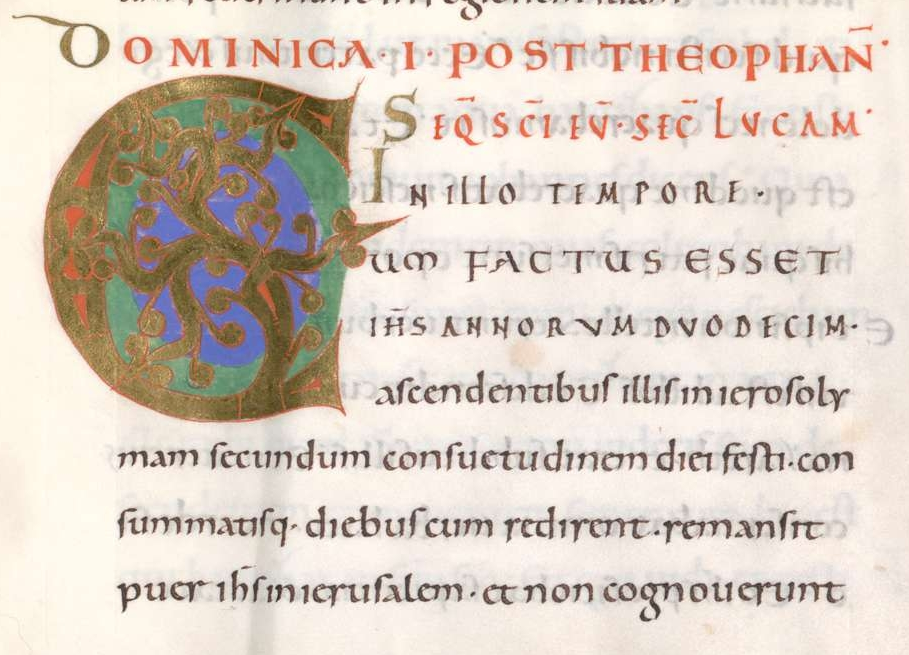 DOMINICA·I·POST THEOPHAN̄·
SEQ̄ SC̄I EV̄·SEC̄ LVCAM·
IN ILLO TEMPORE·
CUM FACTUS ESSET
IH̄S ANNORVM DVODECIM·
ascendentibus illis in ierosoly
mam secundum consuetudinem diei festi·con
summatisq· diebus cum redirent·remansit
puer ih̄s in ierusalem·et non cognouerunt